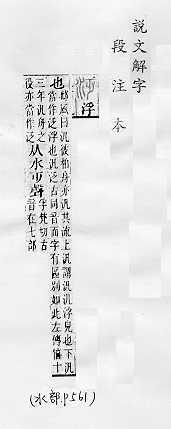 說文解字
段注本
浮
也邶風曰汎彼柏舟亦汎其流上汎謂汎汎浮皃也下汎
當作泛浮也汎泛古同音而字有區別如此左傳僖十
三年汎舟之
役亦當作泛
从水凡聲
孚梵切古
音在七部
(水部.P561)